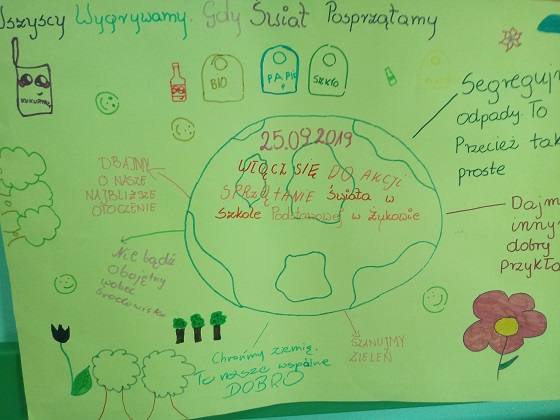 Wszyscy Wygrywamy. Gdy Świat Posprzątamy
KUKURYKU
BIO
PAPIE
SZKŁO
25.09.2019
WŁĄCZ SIĘ DO AKCJI
SPRZĄTANIE Świata w
Szkole Podstawowej w Żukowie
DBAJMY
O NASZE
NAJBLIŻSZE
OTOCZENIE
Nie bądź
obojętny
wobec
środowiska
Segreguj
odpady. To
Przecież tak
proste
Dajm
inny
dobry
Przykła
Chrońmy ziemię.
To nasze wspólne
DOBRO
SZANUJMY
ZIELEŃ